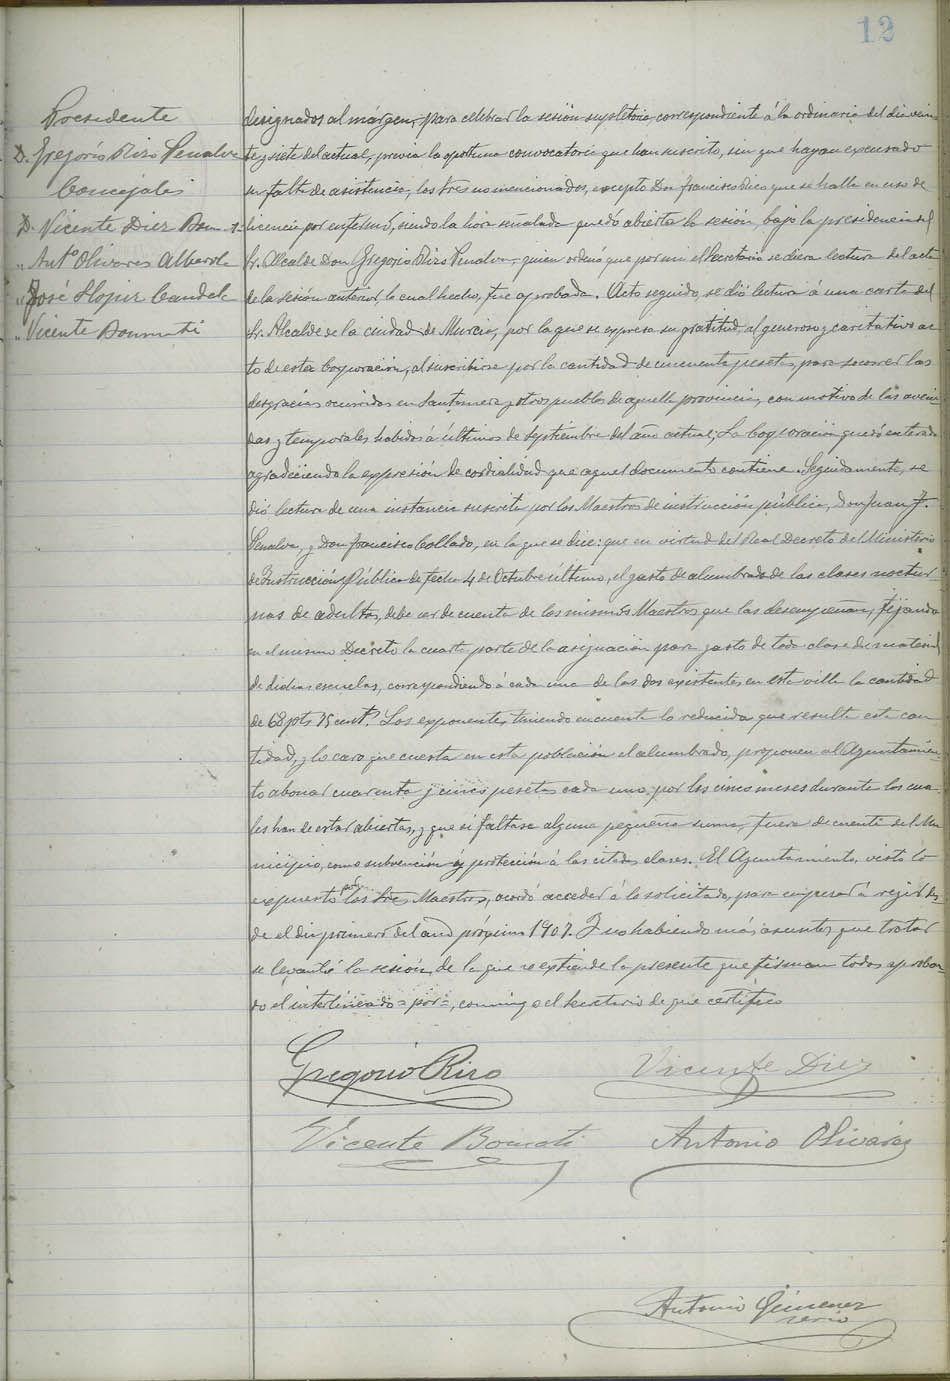 12
Presidente
D. Gregorio Rizo Penalva
Concejales
D. Vicente Diez
" Antº Olivares Alberola
" José Hopier Candela
" Vicente Bonmati
designados al márgen, para celebrar la sesión supletoria, correspondiente á la ordinaria del dia vein
te y siete del actual, previa la oportuna convocatoria que han suscrito, sin que hayan excusado
su falta de asistencia, los Sres no mencionados, excepto Don Francisco Pico que se halla en uso de
licencia por enfermo, siendo la hora señalada quedó abierta la sesión, bajo la presidencia del
Sr. Alcalde Don Gregorio Rizo Penalva, quien ordenó que por mi el Secretario se diera lectura del acta
de la sesión anterior, lo cual hecho, fue aprobada. Acto seguido, se dió lectura á una carta del
Sr. Alcalde de la ciudad de Murcia, por la que se expresa su gratitud, al generoso y caritativo ac
to de esta Corporación, al suscribirse por la cantidad de cincuenta pesetas, para socorrer las
desgracias ocurridas en Santomera y otros pueblos de aquella provincia, con motivo de las aveni
das y temporales habidos á últimos de Septiembre del año actual; La Corporación quedó enterada
agradeciendo la expresión de cordialidad que aquel documento contiene. Seguidamente, se
dió lectura de una instancia suscrita por los Maestros de instrucción pública, Don Juan J.
Penalva, y Don Francisco Collado, en la que se dice: que en virtud del Real Decreto del Ministerio
de Instrucción Pública de fecha 4 de Octubre último, el gasto de alumbrado de las clases noctur
nas de adultos, debe ser de cuenta de los mismos Maestros que las desempeñan, fijando
en el mismo Decreto la cuarta parte de la asignación para gasto de toda clase de material
de dichas escuelas, correspondiendo á cada una de las dos existentes en esta villa la cantidad
de 68 pts 75 centº. Los exponentes, teniendo en cuenta lo reducida que resulta esta can
tidad, y lo caro que cuesta en esta población el alumbrado, proponen al Ayuntamien
to abonar cuarenta y cinco pesetas cada uno, por los cinco meses durante los cua
les han de estar abiertas, y que si faltase alguna pequeña suma, fuera de cuenta del Mu
nicipio, como subvención y protección á las citadas clases. El Ayuntamiento, visto lo
expuesto por los Sres Maestros, acordó acceder á lo solicitado, para empezar á regir des
de el dia primero del año próximo 1907. Y no habiendo más asuntos que tratar
se levantó la sesión, de la que se extiende la presente que firman todos aproban
do el interlineado = por =, conmigo el Secretario de que certifico
Gregorio Rizo
Vicente Diez
Vicente Bonmati
Antonio Olivares
Antonio Gimenez
serio